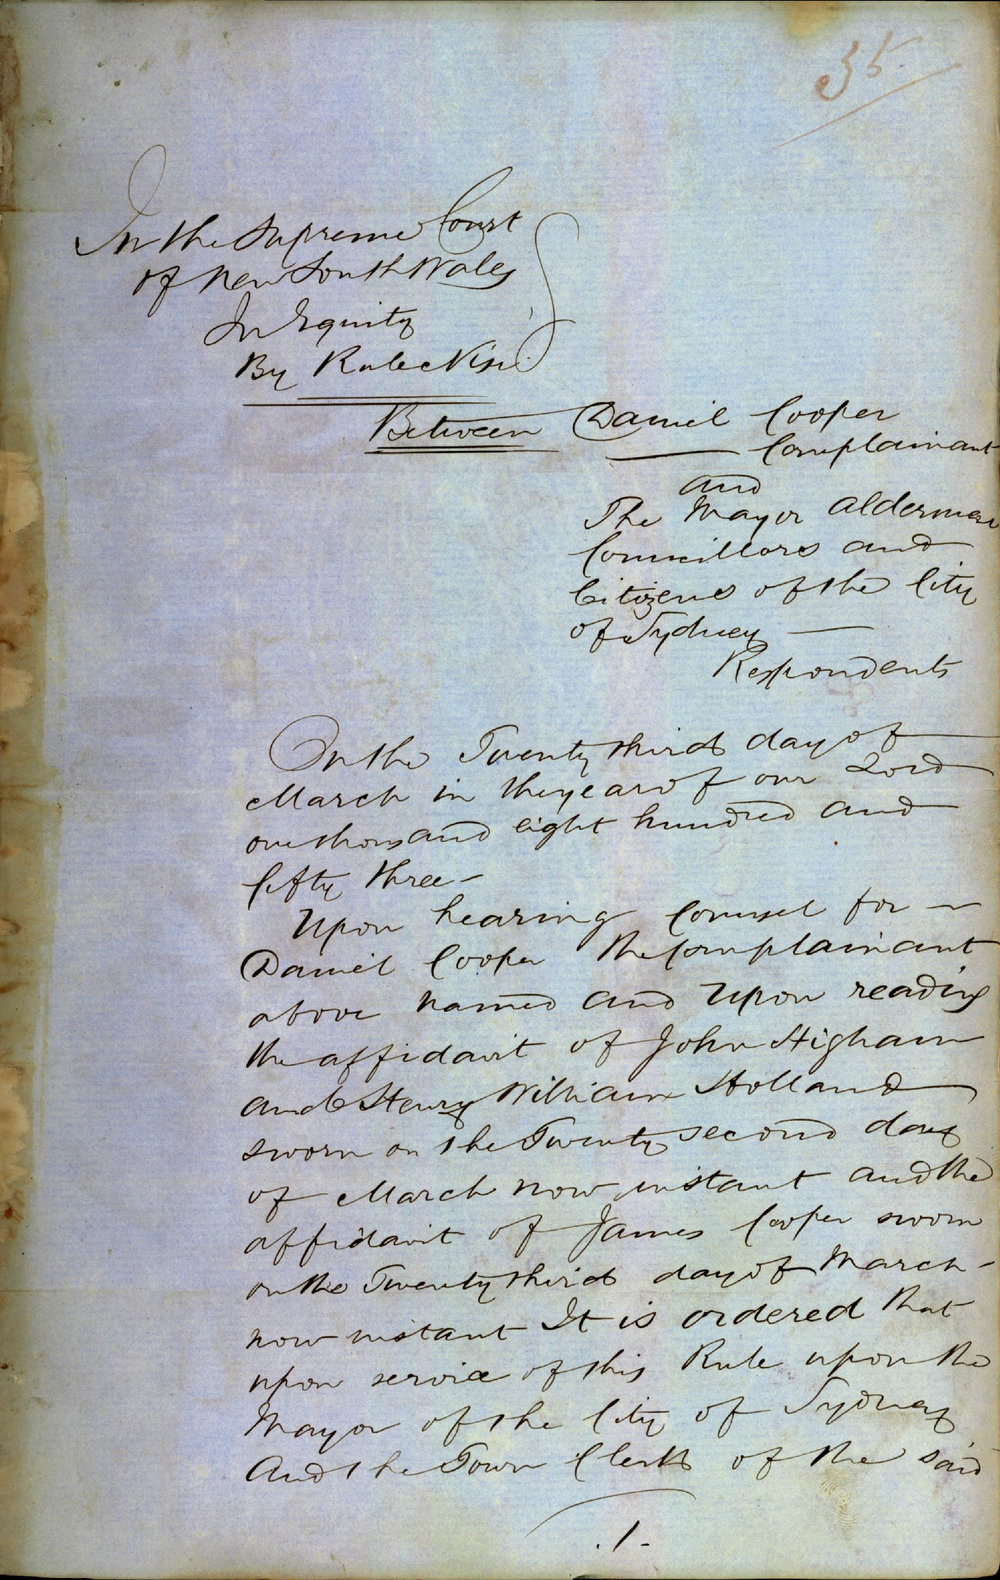 35
In the Supreme Court
of New South Wales
In Equity
By Rule Nisi
Between Daniel Cooper
Complainant
and
The Mayor Aldermen
Councillors and
Citizens of the City
of Sydney —
Respondents
On the Twenty third day of
March in the year of our Lord
one thousand eight hundred and
fifty three -
Upon hearing Counsel for —
Daniel Cooper the Complainant
above named and Upon reading
the affidavit of John Higham
and Henry William Holland
sworn on the Twenty second day
of March now instant and the
affidavit of James Cooper sworn
on the Twenty third day of March -
now instant It is ordered that
upon service of this Rule upon the
Mayor of the City of Sydney
And the Town Clerk of the said
.1-